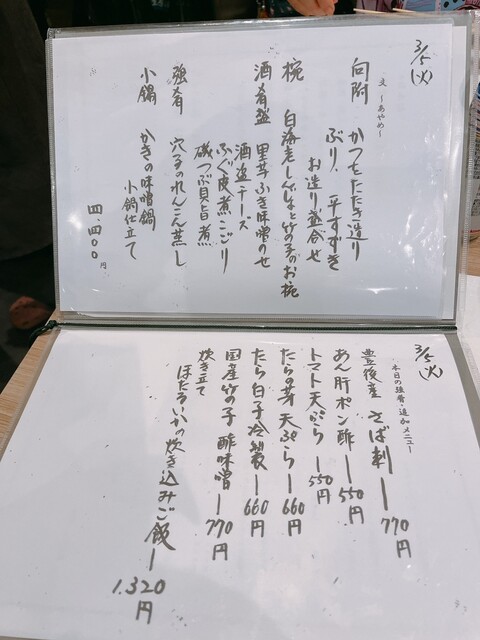 3/5(火)
〜あやめ〜
向附 かつをたたき造り
ぶり、平すずき
お造り盛合せ
椀 白海老しんじょと竹の子のお椀
酒肴盛 里芋ふき味噌のせ
酒盗チーズ
ふぐ皮煮こごり
磯つぶ貝旨煮
強肴 穴子のれんこん蒸し
小鍋 かきの味噌鍋
小鍋仕立て
四、四〇〇円
3/5(火)
本日の強肴・追加メニュー
豊後産 さば刺ー770円
あん肝ポン酢ー550円
トマト天ぷらー550円
たらの芽天ぷらー660円
たら白子冷製ー660円
国産竹の子 酢味噌ー770円
炊き立て
ほたるいかの炊き込みご飯ー1.320円